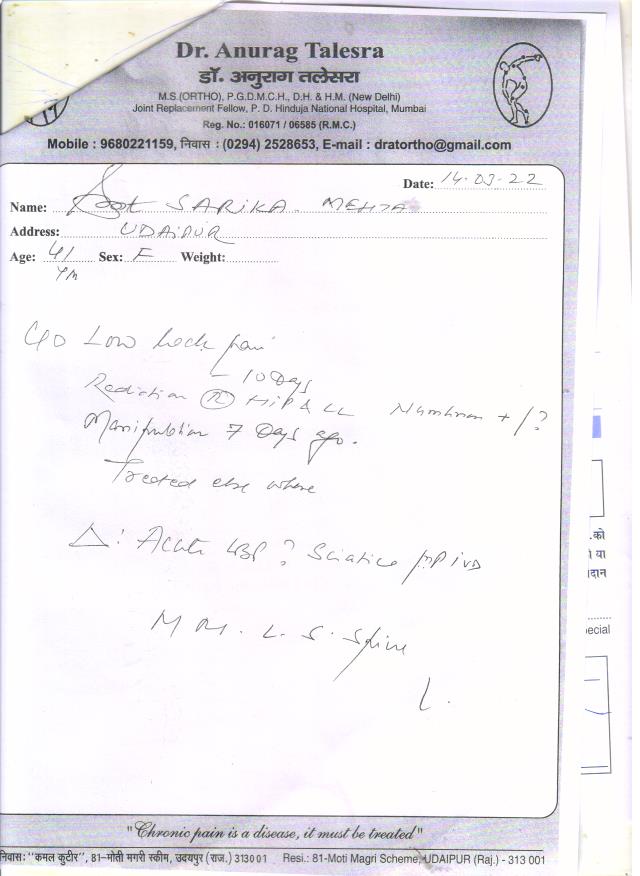 Dr. Anurag Talesra
डॉ. अनुराग तलेसरा
M.S.(ORTHO), P.G.D.M.C.H., D.H. & H.M. (New Delhi)
Joint Replacement Fellow, P. D. Hinduja National Hospital, Mumbai
Reg. No.: 016071 / 06585 (R.M.C.)
Mobile : 9680221159, निवास : (0294) 2528653, E-mail : dratortho@gmail.com
Date: 14.03.22
Name: SARIKA. MEHTA
Address: UDAIPUR
Age: 41 Sex: F Weight:
C/O Low back pain
- 10 Days
Radiation (R) HIP & LL Numbness + / ?
Manipulation 7 Days ago.
Treated else where
Δ: Acute LBP ? Sciatica PIVD
L. S. Spine
.को
या
दान
pecial
"Chronic pain is a disease, it must be treated"
निवास: "कमल कुटीर", 81-मोती मगरी स्कीम, उदयपुर (राज.) 313001 Resi.: 81-Moti Magri Scheme, UDAIPUR (Raj.) - 313 001